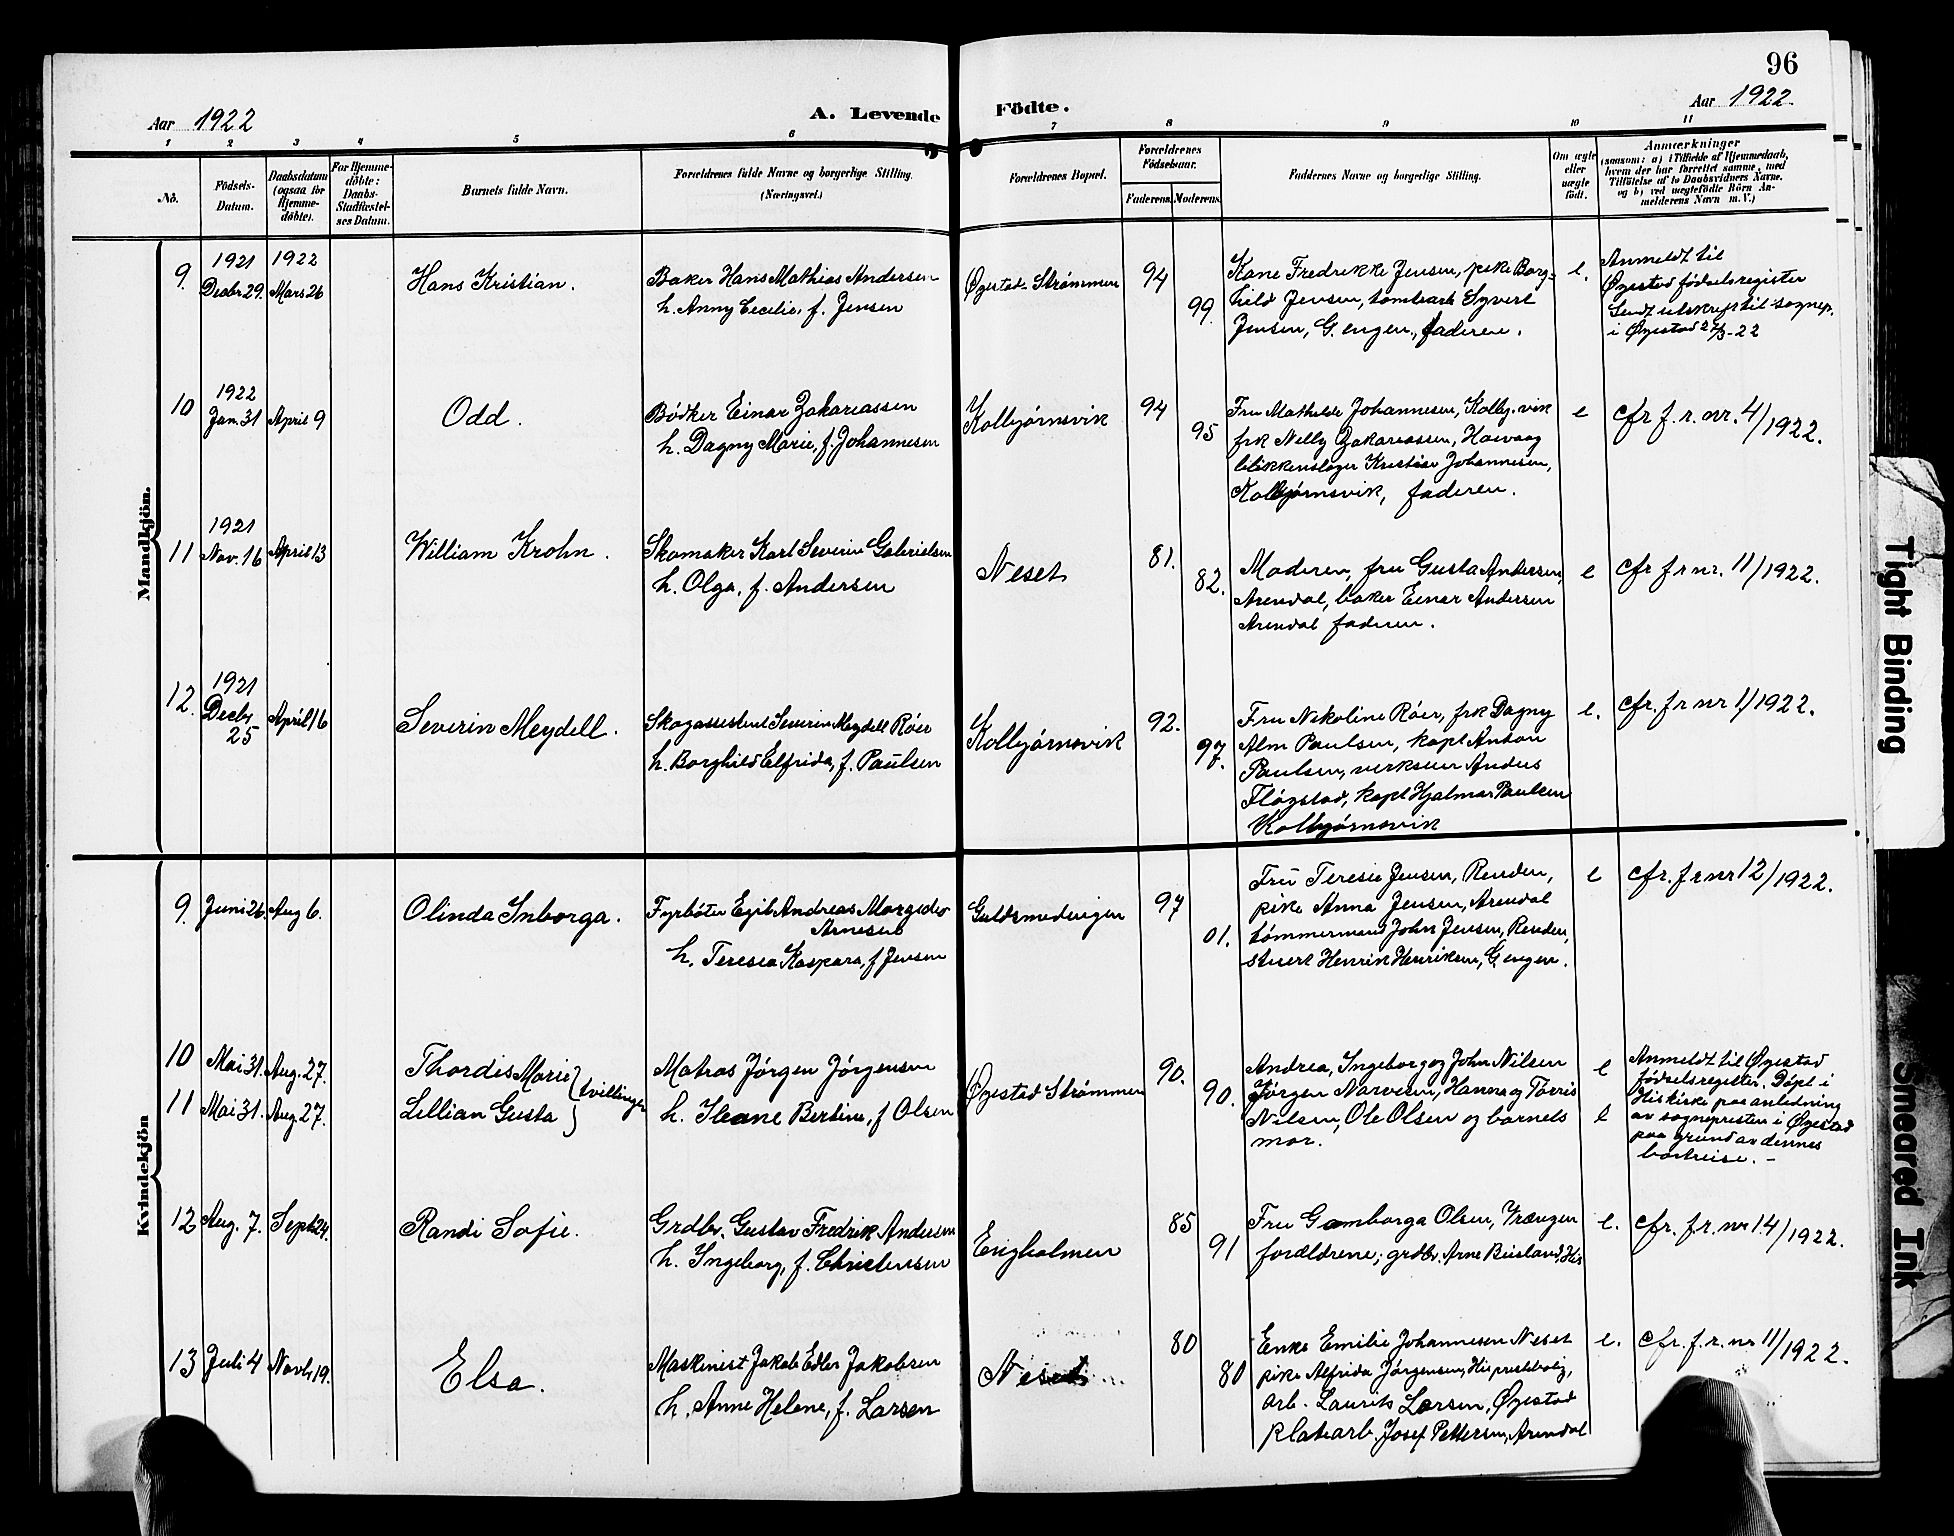 96
Aar 1922
A. Levende Födte.
Aar 1922.
1 2 3 4 5 6 7 8 9 10 11
No.
Födsels-Datum.
Daabsdatum (ogsaa for Hjemme-döbte).
For Hjemme-döbte: Daabs-Stadfæstel-ses Datum.
Barnets fulde Navn.
Forældrenes fulde Navne og borgerlige Stilling.
(Næringsvei.)
Forældrenes Bopæl.
Forældrenes Födselsaar.
Faderens. Moderens.
Faddernes Navne og borgerlige Stilling.
Om ægte eller uægte födt.
Anmærkninger
(saasom: a) i Tilfælde af Hjemmedaab,
hvem der har forrettet samme, med
Tilföielse af to Daabsvidners Navne.
og b) ved uægtefödte Börn An-
melderens Navn m. V.)
Mandkjön.
9. 1921 Decbr 29. 1922 Mars 26
Hans Kristian.
Baker Hans Mathias Andersen
h. Anny Cecilie, f. Jensen
Øyestad-Strømmen
94 99.
Kone Fredrikke Jensen, pike Borg-
hild Jensen, tømherk Syvert
Jensen, G. engen., faderen.
e.
Anmeldt til
Øyestad fødselsregister
Sendt utskrift til sognep.
i Øyestad 27/3-22
10 1922 Jan. 31 April 9
Odd.
Bødker Einar Zakariassen
h. Dagny Marie, f. Johannesen
Kolbjørnsvik
94 95
Fru Mathilde Johannesen, Kolbj.vik
frk Nelly Zakariassen, Haavaag
blikkenslager Kristian Johannesen,
Kolbjørnsvik, faderen.
e
cfr f. r. nr. 4/1922.
11 1921 Nov. 16 April 13
William Krohn.
Skomaker Karl Severin Gabrielsen
h. Olga, f. Andersen
Neset
81. 82.
Moderen, fru Gusta Andersen,
Arendal, baker Einar Andersen
Arendal faderen.
e
cfr f r nr. 11/1922.
12. 1921 Decbr 25 April 16
Severin Meydell.
Skogassistent Severin Meydell Røer
h. Borghild Elfrida, f. Paulsen
Kolbjørnsvik
92. 97.
Fru Nikoline Røer, frk Dagny
Alm Paulsen, kapt Anton
Paulsen, verkseier Anders
Fløgstad, kapt Hjalmar Paulsen
Kolbjørnsvik
e.
cfr. f r nr 1/1922.
Kvindekjön
9. Juni 26. Aug 6.
Olinda Inborga.
Fyrbøter Egil Andreas Margido
Arnesen
h. Teresia Kaspara, f Jensen
Guldsmedengen
97 01.
Fru Teresie Jensen, Renden,
pike Anna Jensen, Arendal
tømmermand John Jensen, Renden,
stuert Henrik Henriksen, G. engen.
e
cfr. f r nr 12/1922.
10 Mai 31. Aug. 27.
11 Mai 31. Aug. 27.
Thordis Marie
Lillian Gusta
tvillinger
Matros Jørgen Jørgensen
h. Ileane Bertine, f Olsen
Øyestad Strømmen
90. 90.
Andrea, Ingeborg og John Nilsen
Jørgen Narvesen, Hanna og Tørris
Nilsen, Ole Olsen og barnets
mor.
e
e
Anmeldt til Øyestad
fødselsregister. Døpt i
Hiskirke paa anledning
av sognepresten i Øyestad
paa grund av dennes
bortreise. -
12 Aug. 7. Sept 24.
Randi Sofie.
Grdbr. Gustav Fredrik Andersen
h. Ingeborg, f. Christensen
Engholmen
85 91
Fru Gamborga Olsen, Vrængen
forældrene; grdbr. Arne Busland, His
e.
cfr. f. r. nr 14/1922.
13 Juli 4 Novb 19.
Elsa.
Maskinist Jakob Edler Jakobsen
h. Anne Helene, f. Larsen
Neset
80 80
Enke Emilie Johannesen Neset
pike Alfrida Jørgensen, His prestebolig,
arb. Laurits Larsen, Øyestad
platearb. Josef Pettersen, Arendal
e.
cfr. f. r. nr 11/1922.
Tight Binding
Smeared Ink